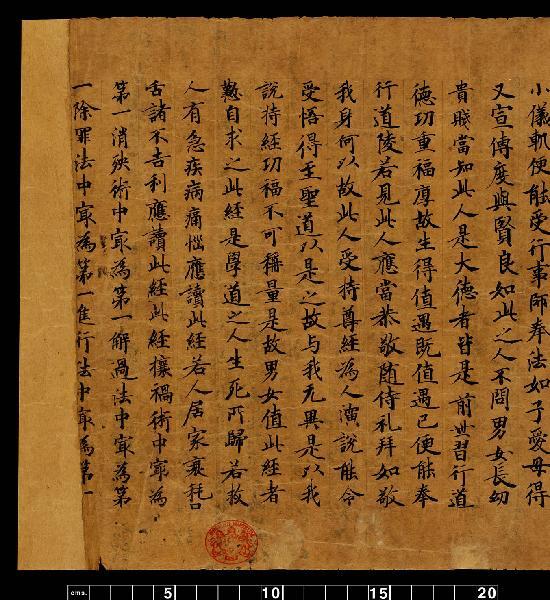 小儀軌便能受行事師奉法如子愛母得
又宣傳度與賢良如此之人不問男女長幼
貴賤當知此人是大德者皆是前世習行道
德功重福厚故生得值遇既值遇已便能奉
行道陵若見此人應當恭敬随侍礼拜如敬
我身何以故此人受持尊經為人演說能令
受悟得至聖道以是之故与我无異是以我
說持經功福不可稱量是故男女值此經者
懃自求之此經是學道之人生死所歸若救
人有急疾病痛惱應讀此經若人居家衰耗口
舌諸不吉利應讀此經此經攘禍術中寂為
第一消殃術中寂為第一解過法中寂為第
一除罪法中寂為第一進行法中寂為第一
cms. 5 10 15 20